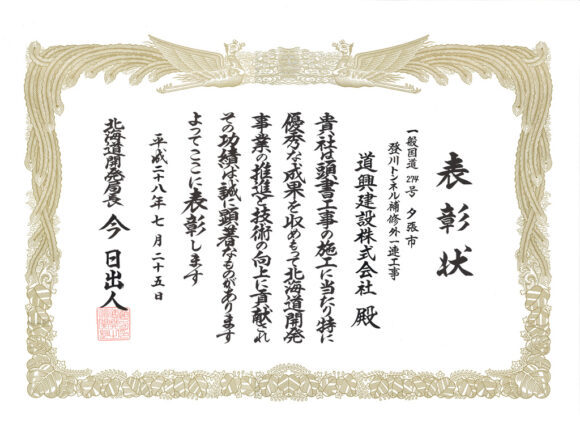 表彰状
一般国道274号 夕張市
登川トンネル補修外一連工事
道興建設株式会社 殿
貴社は頭書工事の施工に当たり特に
優秀な成果を収めもって北海道開発
事業の推進と技術の向上に貢献され
その功績は誠に顕著なものがあります
よってここに表彰します
平成二十八年七月二十五日
北海道開発局長 今 日出人